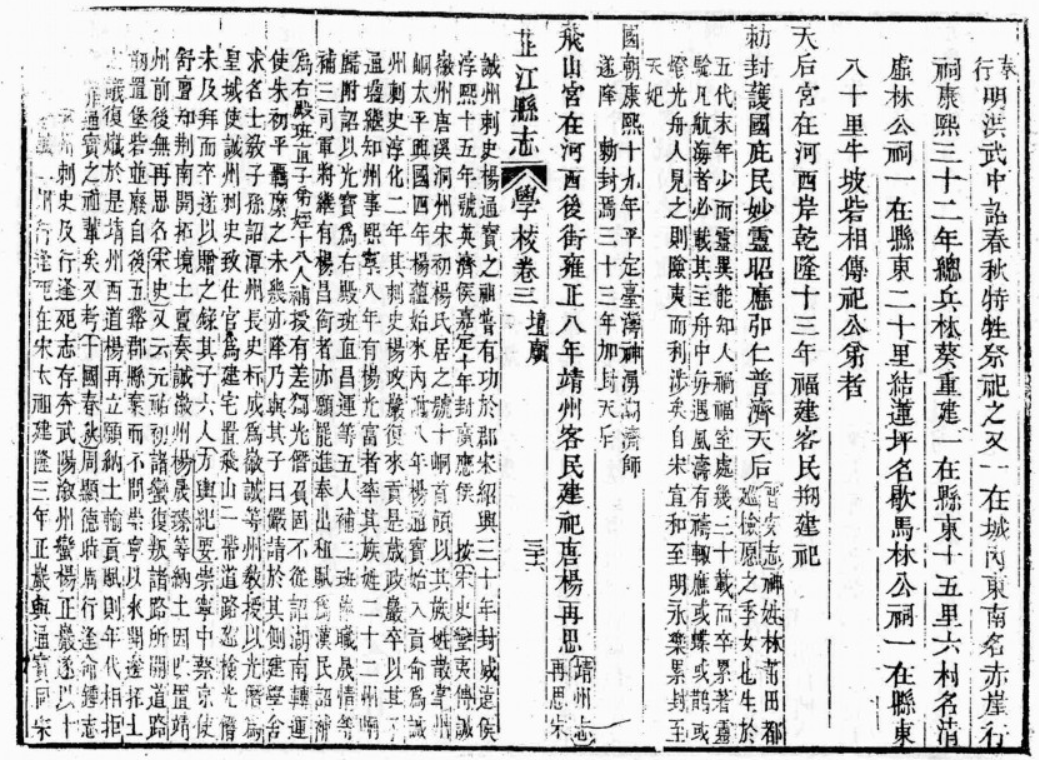 奉
行明洪武中詔春秋特牲祭祀之又一在城內東南名赤崖行
祠康熙三十二年總兵林葵重建一在縣東十五里六村名清
虛林公祠一在縣東二十里結蓮坪名歇馬林公祠一在縣東
八十里牛坡砦相傳祀公弟者
天后宮在河西岸乾隆十三年福建客民剙建祀
勅封護國庇民妙靈昭應弘仁普濟天后
晉安志神姓林莆田都
巡檢愿之季女也生於
五代末年少而靈異能知人禍福室處幾二十載而卒累著靈
驗凡航海者必載其主舟中每遇風濤有禱輒應或蝶或鵲或
燈光舟人見之則險夷而利涉矣自宋宣和至明永樂累封至
天妃
國朝康熙十九年平定臺灣神湧潮濟師
遂隆勅封焉三十三年加封天后
飛山宮在河西後街雍正八年靖州客民建祀唐楊再思
靖州志
再思宋
芷江縣志 學校卷三 壇廟 三十六
誠州刺史楊通寶之神嘗有功於郡宋紹興三十年封威遠侯
淳熙十五年號英濟侯嘉定十年封廣應侯 按宋史蠻夷傳誠
徽州唐溪洞州宋初楊氏居之號十峒首領以其族姓散掌州
峒太平興國四年楊蘊始來內附八年楊通寶始入貢命為誠
州刺史淳化二年其刺史楊政巖復來貢是歲政巖卒以其子
通𡐫繼知州事熙寧八年有楊光富者率其族姓二十三州峒
歸附詔以光富為右殿班直昌運等五人補三班奉職晟情等
補三司軍將繼有楊昌銜者亦願罷進奉出租賦為漢民詔補
為右殿班直子弟姪十八人補授有差獨光僭頡固不從詔湖南轉運
使朱初平羈縻之未幾亦降乃與其子日儼請於其側建學舍
求名士教子孫詔潭州長史朴成為徽誠等州教授以光僭為
皇城使誠州刺史致仕官為建宅置飛山一帶道路巡檢光僭
未及拜而卒遂以贈之錄其子六人方輿紀要崇寧中蔡京使
舒亶知荊南開拓境土亶奏誠徽州楊晟臻等納土因以置靖
州前後無再思名宋史又云元祐初諸蠻復叛諸路所開道路
剙置堡砦並廢自後五谿郡縣棄而不問崇寧以來開邊拓土
之議復熾於是靖州西道楊再立願納土輸貢賦則年代相拒
非通寶之神輩矣又考十國春秋周顯德時周行逢命鍾志
刺史及行逢死志存奔武陽溆州蠻楊正巖遂以十
行逢死在宋太祖建隆三年正巖與通寶同宋